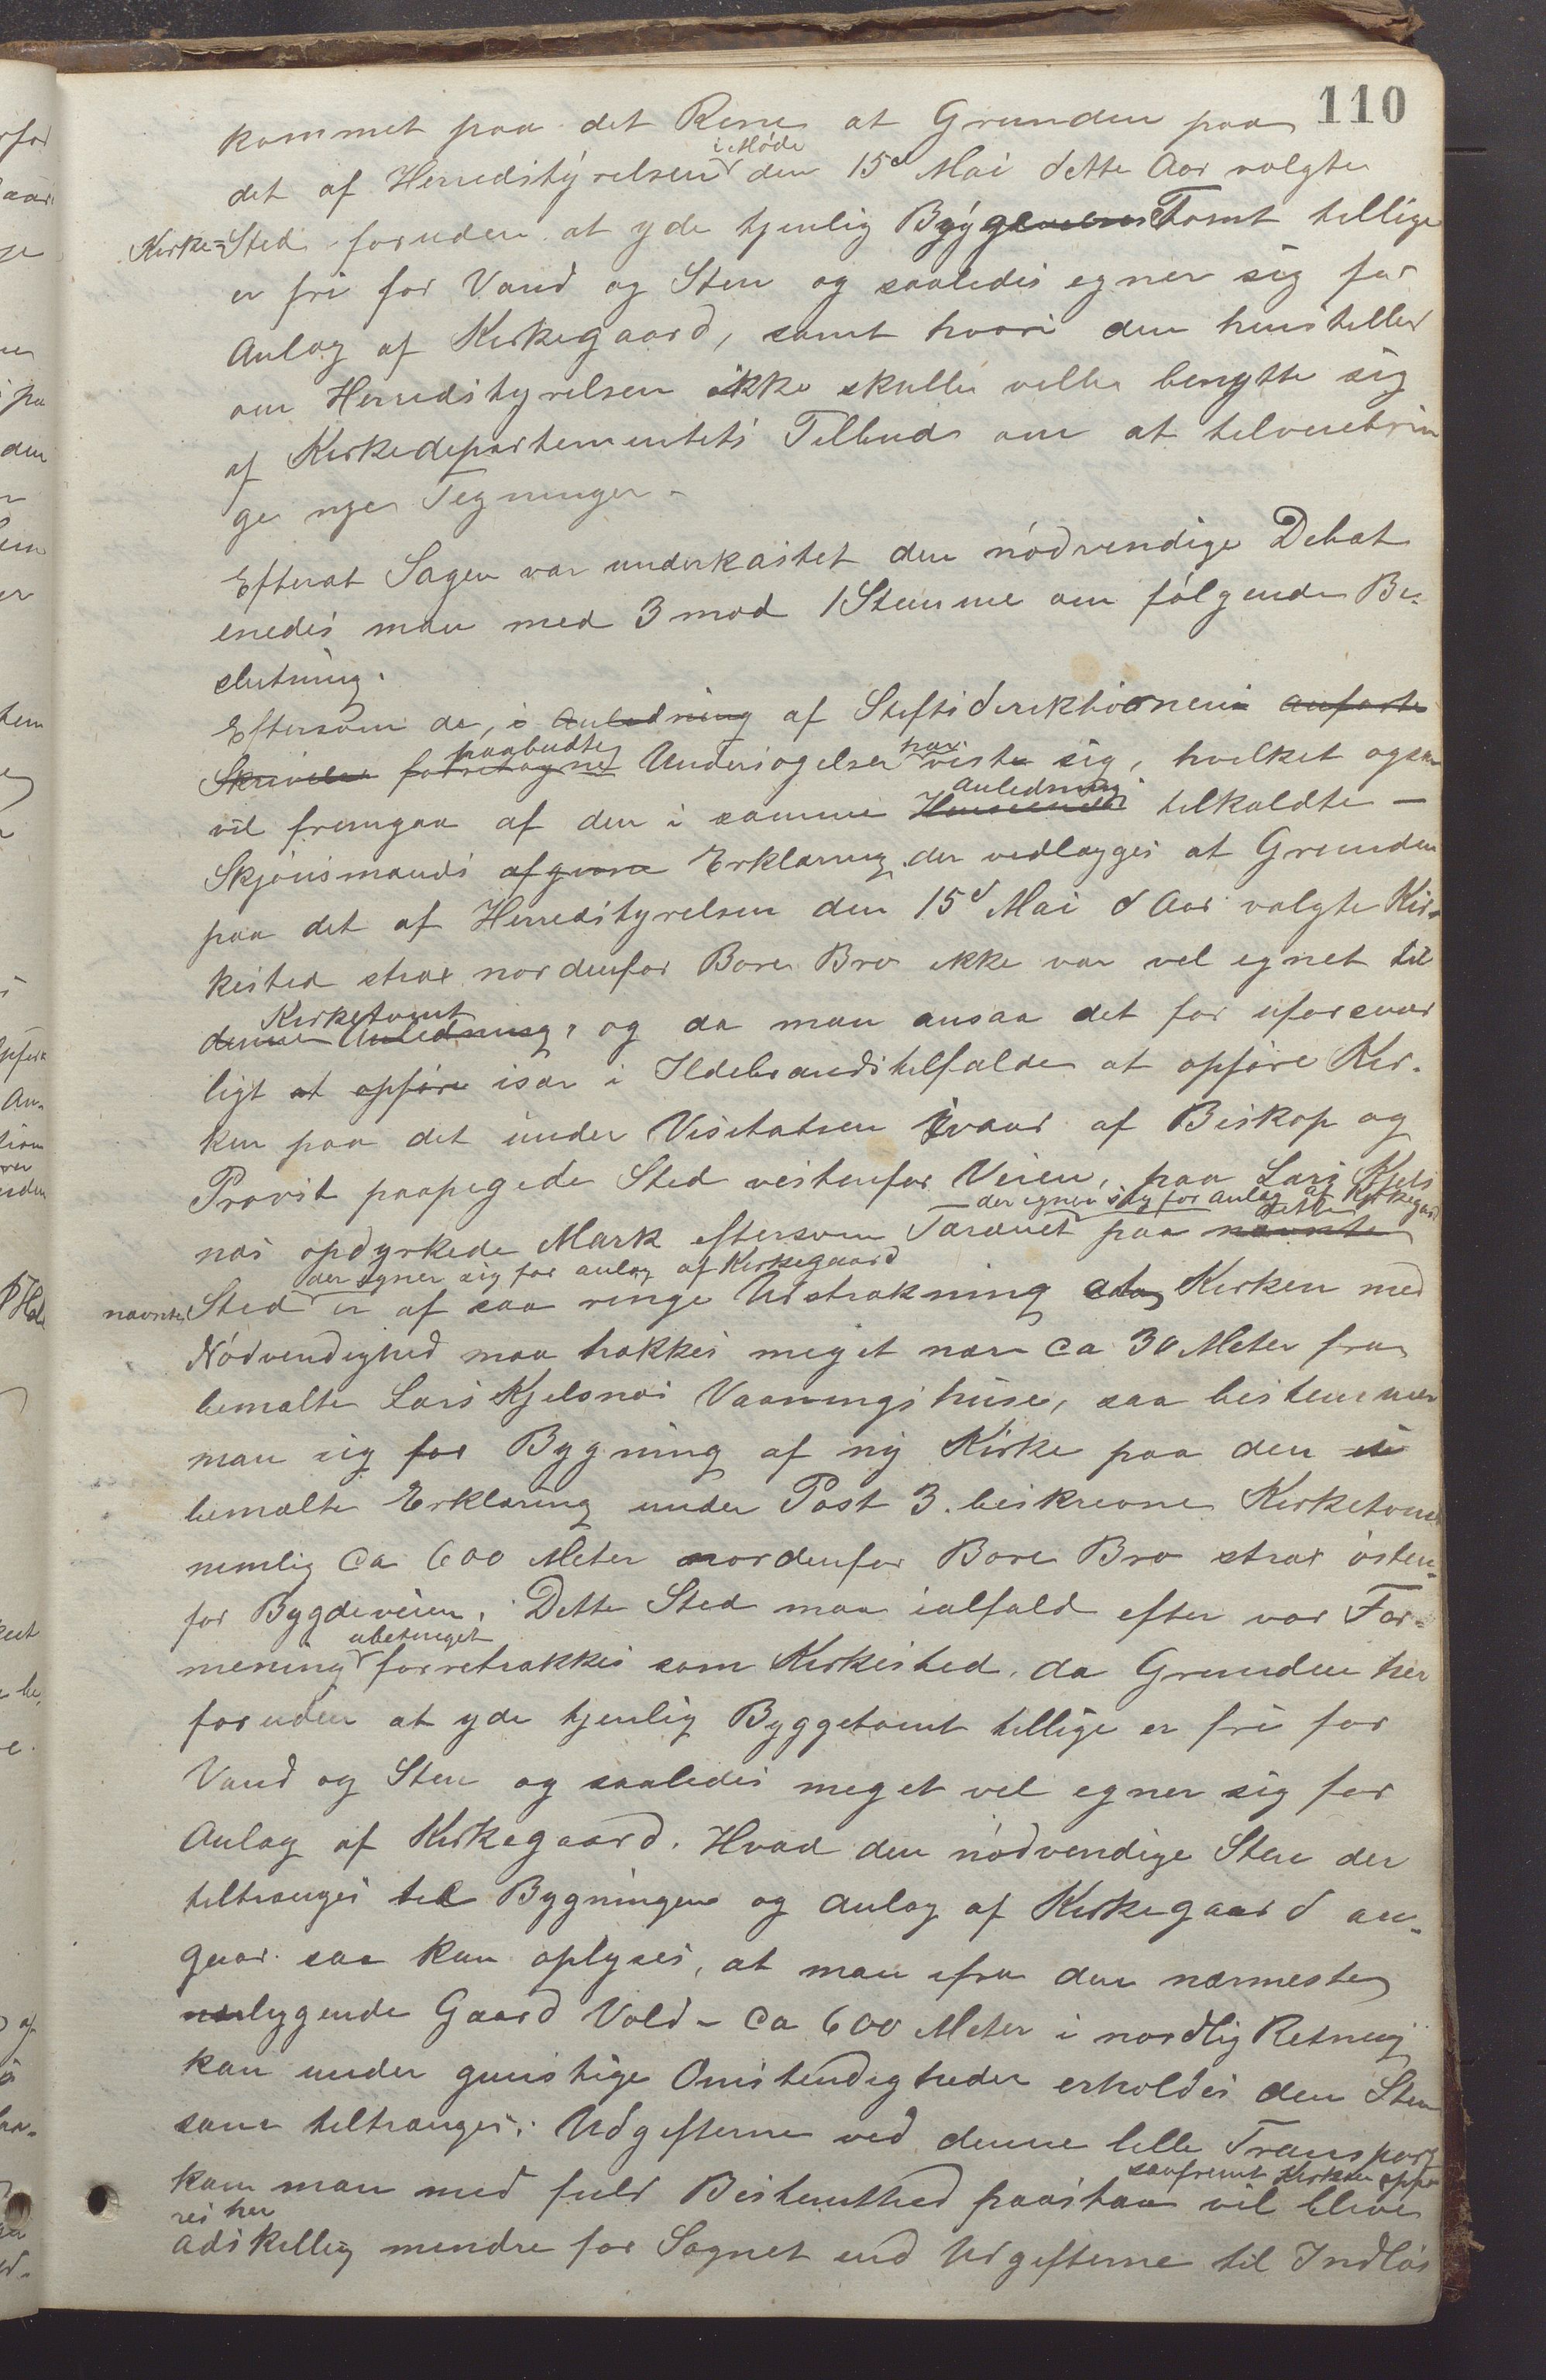 110
kommet paa det Rene at Grunden paa
det af Herredstyrelsen i Møde den 15d Mai dette Aar valgte
Kirke-Sted foruden at yde tjenlig Byggetomt tillige
er fri for Vand og Sten og saaledes egner sig for
Anlæg af Kirkegaard, samt hvori den henstiller
om Herredstyrelsen ikke skulle ville benytte sig
af Kirkedepartementets Tilbud om at tilveiebrin
ge nye Tegninger.
Efterat Sagen var underkastet den nødvendige Debat
enedes man med 3 mod 1 Stemme om følgende Be-
slutning.
Eftersom de, i Anledning af Stiftsdirektionens anførte
Skrivelse foretagne paabudte Undersøgelser har viste sig, hvilket ogsaa
vil fremgaa af den i samme Henseende Anledning tilkaldte -
Skjønsmands afgivne Erklæring der vedlægges at Grunden
paa det af Herredstyrelsen den 15d Mai d Aar valgte Kir-
kested strax nordenfor Bore Bro ikke var vel egnet til
Kirketomt
denne Anledning, og da man ansaa det for uforsvar
ligt at opføre især i Ildebrandstilfælde at opføre Kir-
ken paa det under Visitatsen ivaar af Biskop og
Provst paapegede Sted vestenfor Veien, paa Lars Kjels
der egner sig for Anlæg af Kirkegaard
næs opdyrkede Mark eftersom Terrænet paa nævnte dette
der egner sig for Anlæg af Kirkegaard
nævnte Sted er af saa ringe Udstrækning at Kirken med
Nødvendighed maa trækkes meget nær ca 30 Meter fra
bemælte Lars Kjelsnæs Vaaningshuse, saa bestemmer
man sig for Bygning af ny Kirke paa den i
bemælte Erklæring under Post 3. beskrevne Kirketomt
nemlig ca 600 Meter nordenfor Bore Bro strax østen-
for Bygdeveien. Dette Sted maa ialfald efter vor For-
mening ubetinget forretrækkes som Kirkested, da Grunden her
foruden at yde tjenlig Byggetomt tillige er fri for
Vand og Sten og saaledes meget vel egner sig for
Anlæg af Kirkegaard. Hvad den nødvendige Sten der
tiltrænges til Bygningen og Anlæg af Kirkegaard an-
gaar saa kan oplyses, at man ifra den nærmeste
nærlyggende Gaard Vold - ca 600 Meter i nordlig Retning
kan under gunstige Omstendigheder erholdes den Sten
som tiltrænges; Udgifterne ved denne lille Transport
kan man med fuld Bestemthed paastaa saafremt Kirken opfø
res her vil blive
adskillig mindre for Sognet end Udgifterne til Indløs